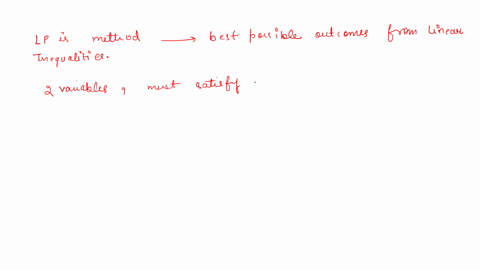 LP is method → best possible outcomes from linear
Inequalities.
2 variables, must satisfy.